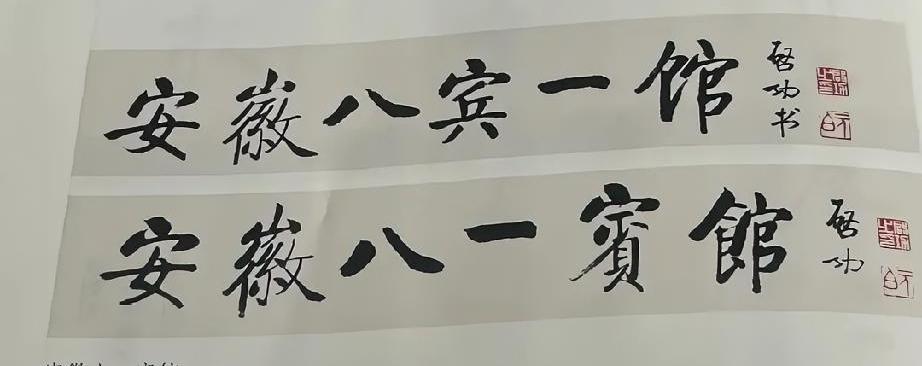 安徽八宾一馆 启功书
安徽八一賓館 启功